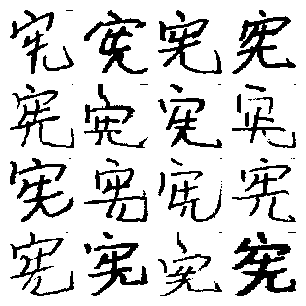 宪宪宪宪
宪宪宪宪
宪宪宪宪
宪宪宪宪